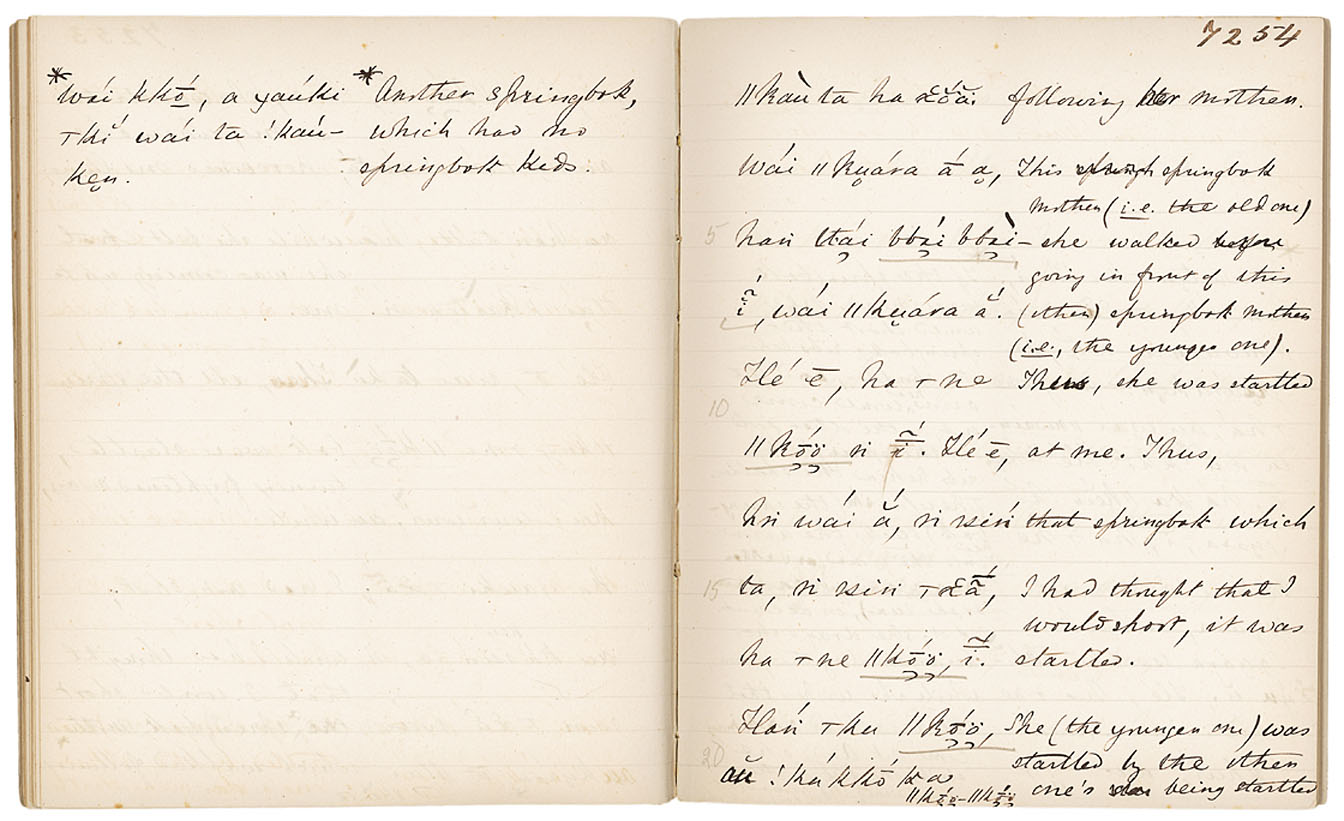 *wái kkṓ, a χaúki
*Another springbok,
ꞇkĭ wái ta !kaú-
which had no
kẹn.
springbok kids.
7254
ǁkàu ta ha xŏ́ắ. following her mother.
wái ǁkṷára ā́ a̯, This springbok
mother (i.e. the old one)
5 han ttái bbái bbài- she walked before
going in front of this
ī́̃, wái ǁkṷára ắ. (other) springbok mother
(i.e., the younger one).
Hé ē, ha ꞇne Thus, she was startled
10
ǁkṓö ṅ ī́̃. Hé ē, at me. Thus,
hṅ wái ắ, ṅ ssiṅ that springbok which
15 ta, ṅ ssin ꞇxā̃́, I had thought that I
would shoot, it was
ha ꞇne ǁkṓö, ī́̃. startled.
Haṅ ꞇku ǁkṓö, She (the younger one) was
startled by the other
20 au !kúkkō ka
ǁkṓö-ǁkṓö one's being startled